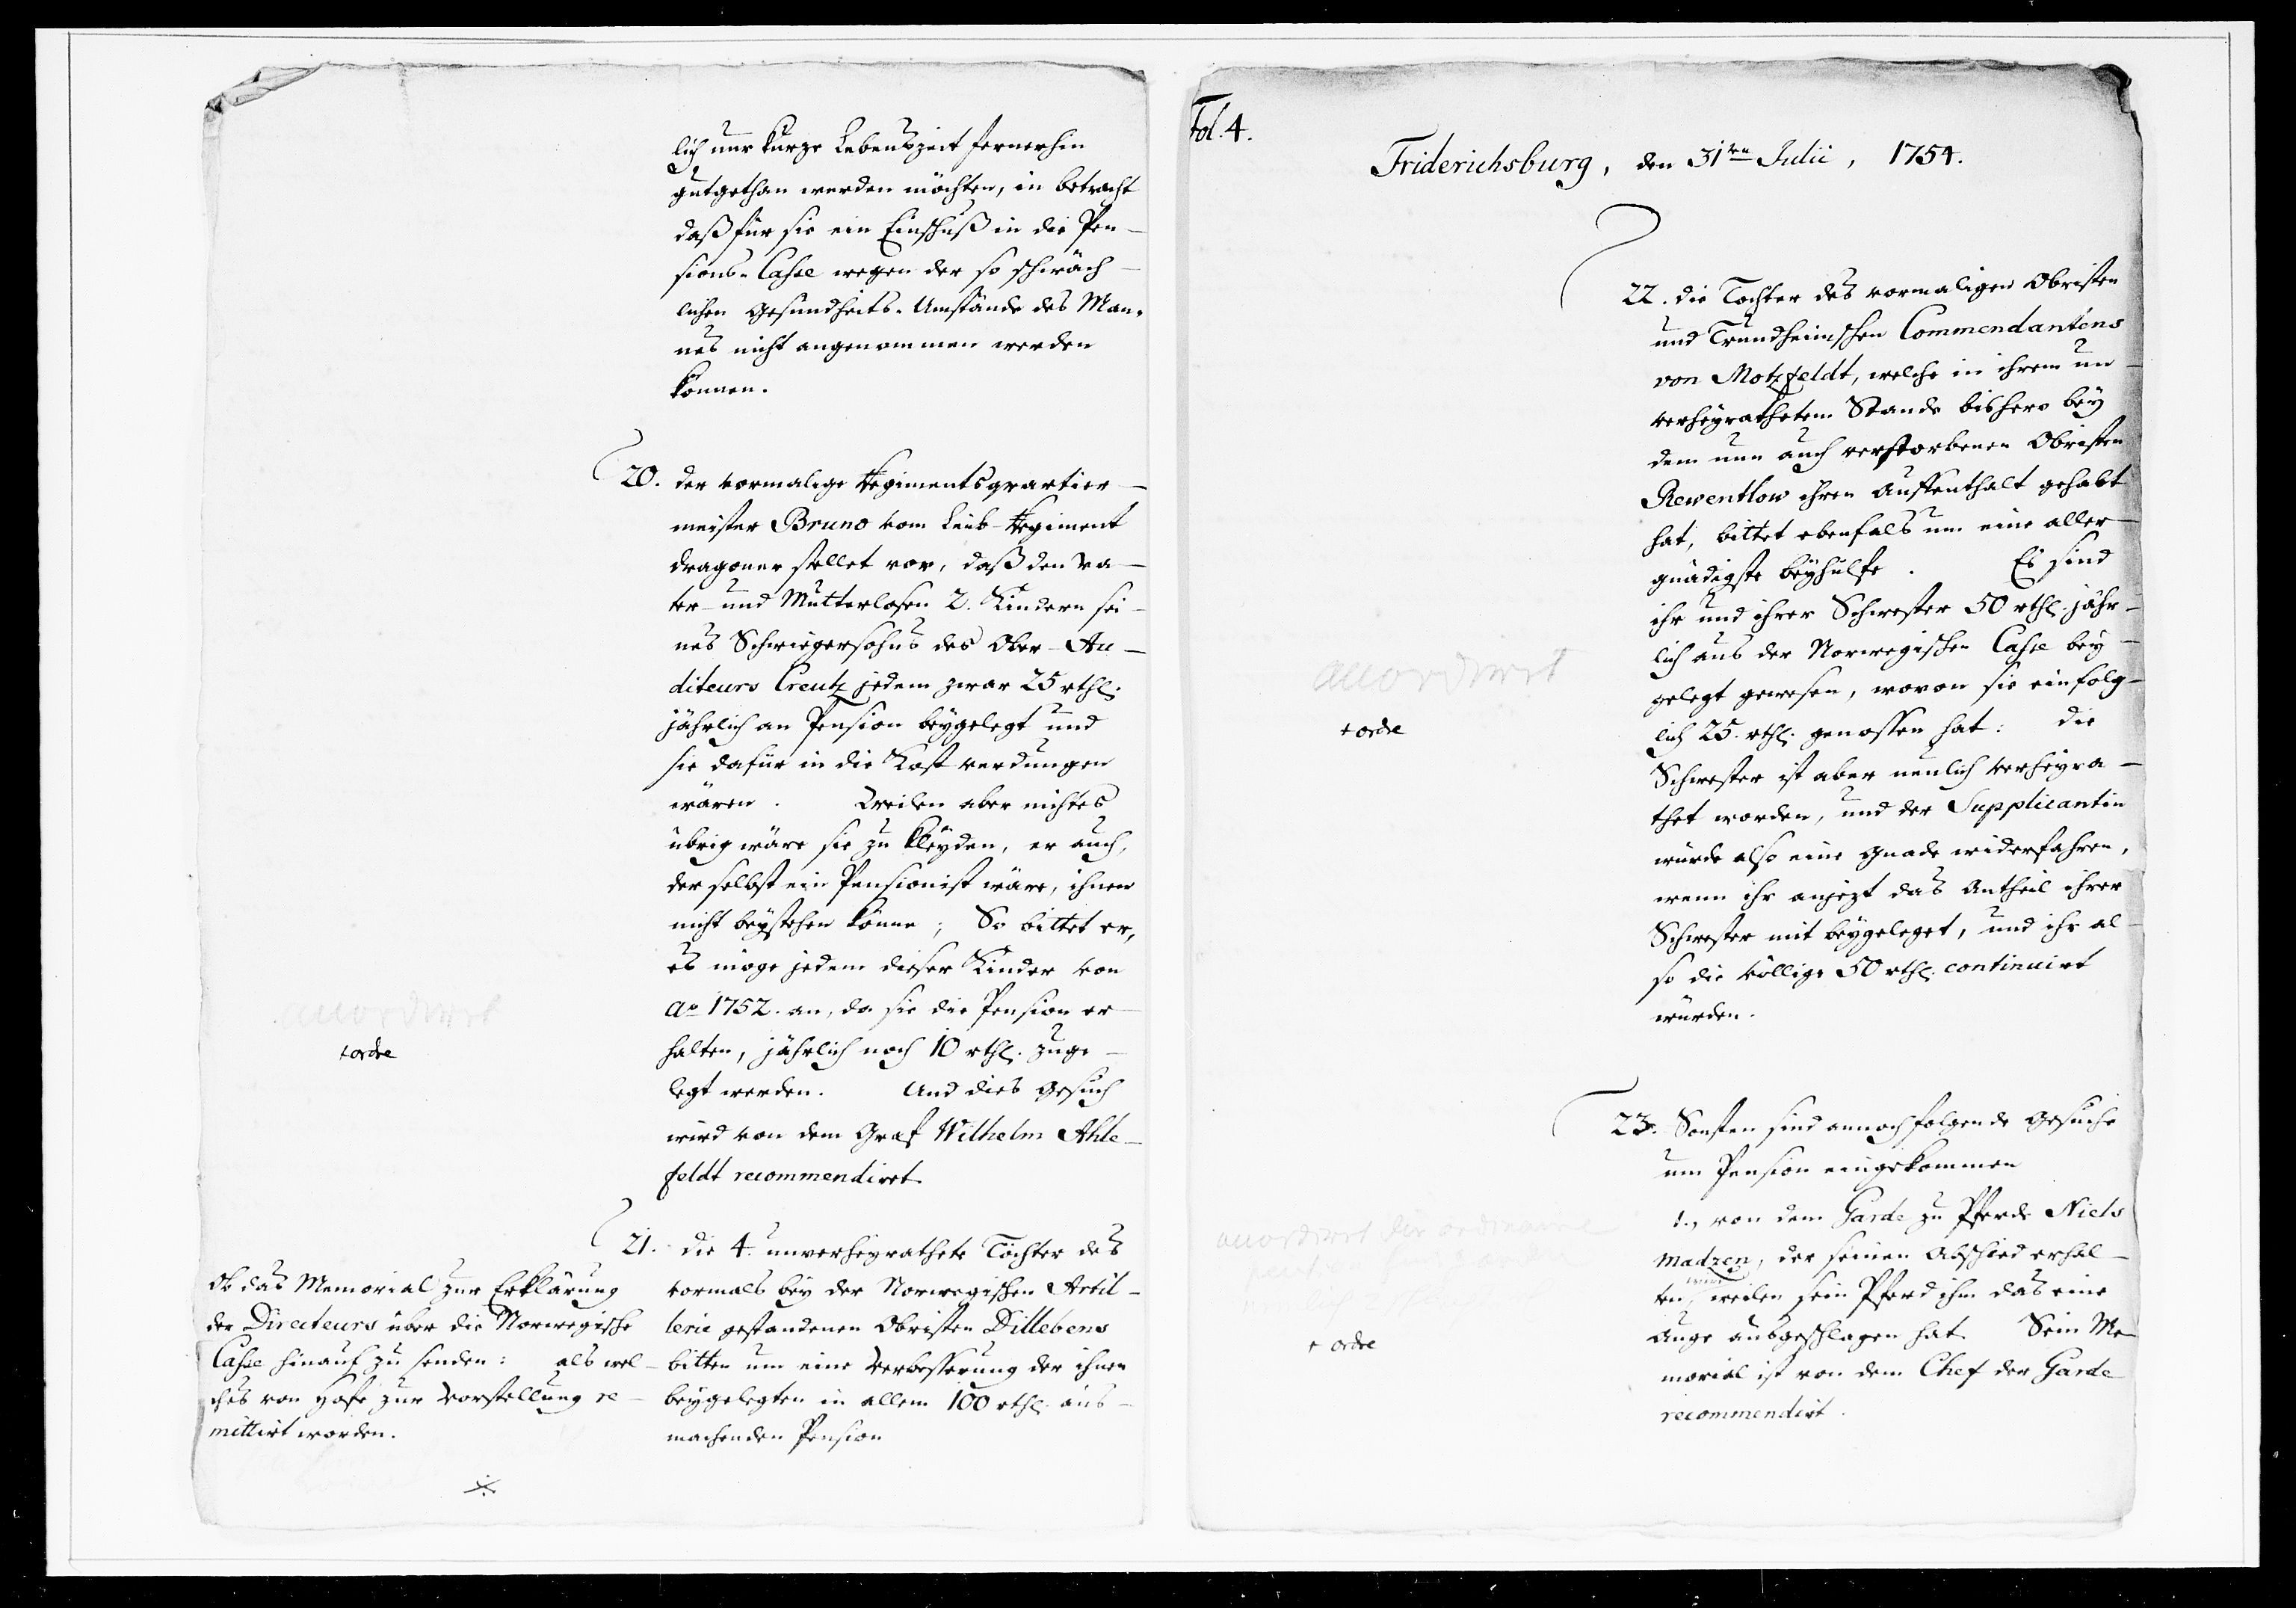 lich nur kurze Lebenszeit fernerhin
gutgethan werden möchten, in betracht
daß für sie ein Einschuß in die Pen-
sions-Casse wegen der so schwäch-
lichen Gesundheits-Umstände des Man-
nes nicht angenommen werden
können.
20. der vormalige Regimentsqvartier-
meister Bruno vom Leib-Regiment
dragoner stellet vor, daß den Va-
ter- und Mutterlosen 2. Kindern sei-
nes Schwiegersohns des Ober-Au-
diteurs Creutz jedem zwar 25 rthl.
jährlich an Pension beygelegt und
sie dafür in die Kost verdungen
wären. Weilen aber nichtes
übrig wäre sie zu kleyden, er auch,
der selbst ein Pensionist wäre, ihnen
nicht beystehen könne; So bittet er,
es möge jedem dieser Kinder von
Ao 1752. an, da sie die Pension er-
halten, jährlich noch 10 rthl. zuge-
legt werden. Und dies Gesuch
wird von dem Graf Wilhelm Ahle-
feldt recommendiret.
accordiret
+ ordre
21. die 4. unverheyrathete Töchter des
vormals bey der Norwegischen Artil-
lerie gestandenen Obristen Dillebens
bitten um eine Verbesserung der ihnen
beygelegten in allem 100 rthl. aus-
machenden Pension
Ob das Memorial zur Erklärung
der Directeurs über die Norwegische
Casse hinauf zu senden: als wel-
ches von Hofe zur Vorstellung re-
mittirt worden.
Fol. 4.
Friderichsburg, den 31ten Julii, 1754.
22. die Tochter des vormaligen Obristen
und Trundheimschen Commendantens
von Motzfeldt, welche in ihrem un-
verheyrathetem Stande bishero bey
dem nun auch verstorbenen Obristen
Rewentlow ihren Auffenthalt gehabt
hat, bittet ebenfals um eine aller-
gnädigste beyhülfe. Es sind
ihr und ihrer Schwester 50 rthl. jähr-
lich aus der Norwegischen Casse bey-
gelegt gewesen, wovon sie einfolg-
lich 25. rthl. genossen hat: die
Schwester ist aber neulich verheyra-
thet worden, und der Supplicantin
würde also eine Gnade widerfahren,
wenn ihr anjezt das Antheil ihrer
Schwester mit beygeleget, und ihr al-
so die völlige 50 rthl. continuirt
würden.
accordiret
+ ordre
23. Sonsten sind annoch folgende Gesuche
um Pension eingekommen
1., von dem Garde zu Pferde Niels
Madzen, der seinen Abschied erhal-
ten, weilen sein Pferd ihm das eine
Auge ausgeschlagen hat. Sein Me-
morial ist von dem Chef der Garde
recommendirt.
accordiret die ordinaire
+ ordre